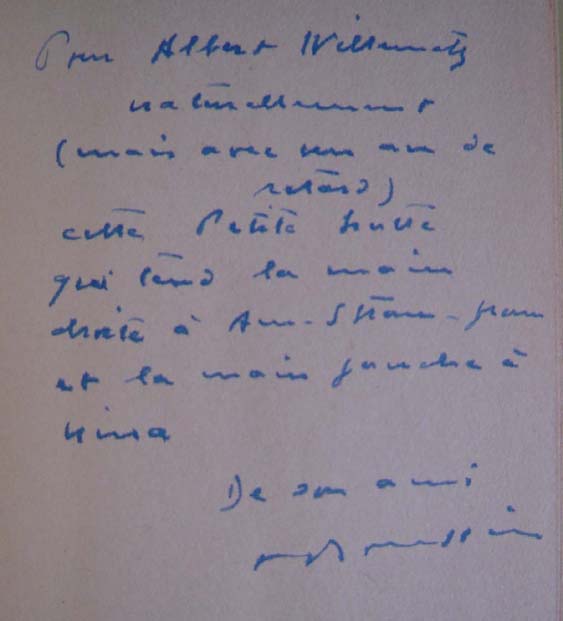 Pour Albert Willemetz
naturellement
(mais avec un an de
retard)
cette Petite hutte
qui tend la main
droite à Am-Stram-gram
et la main gauche à
Nina
De son ami
Roussin